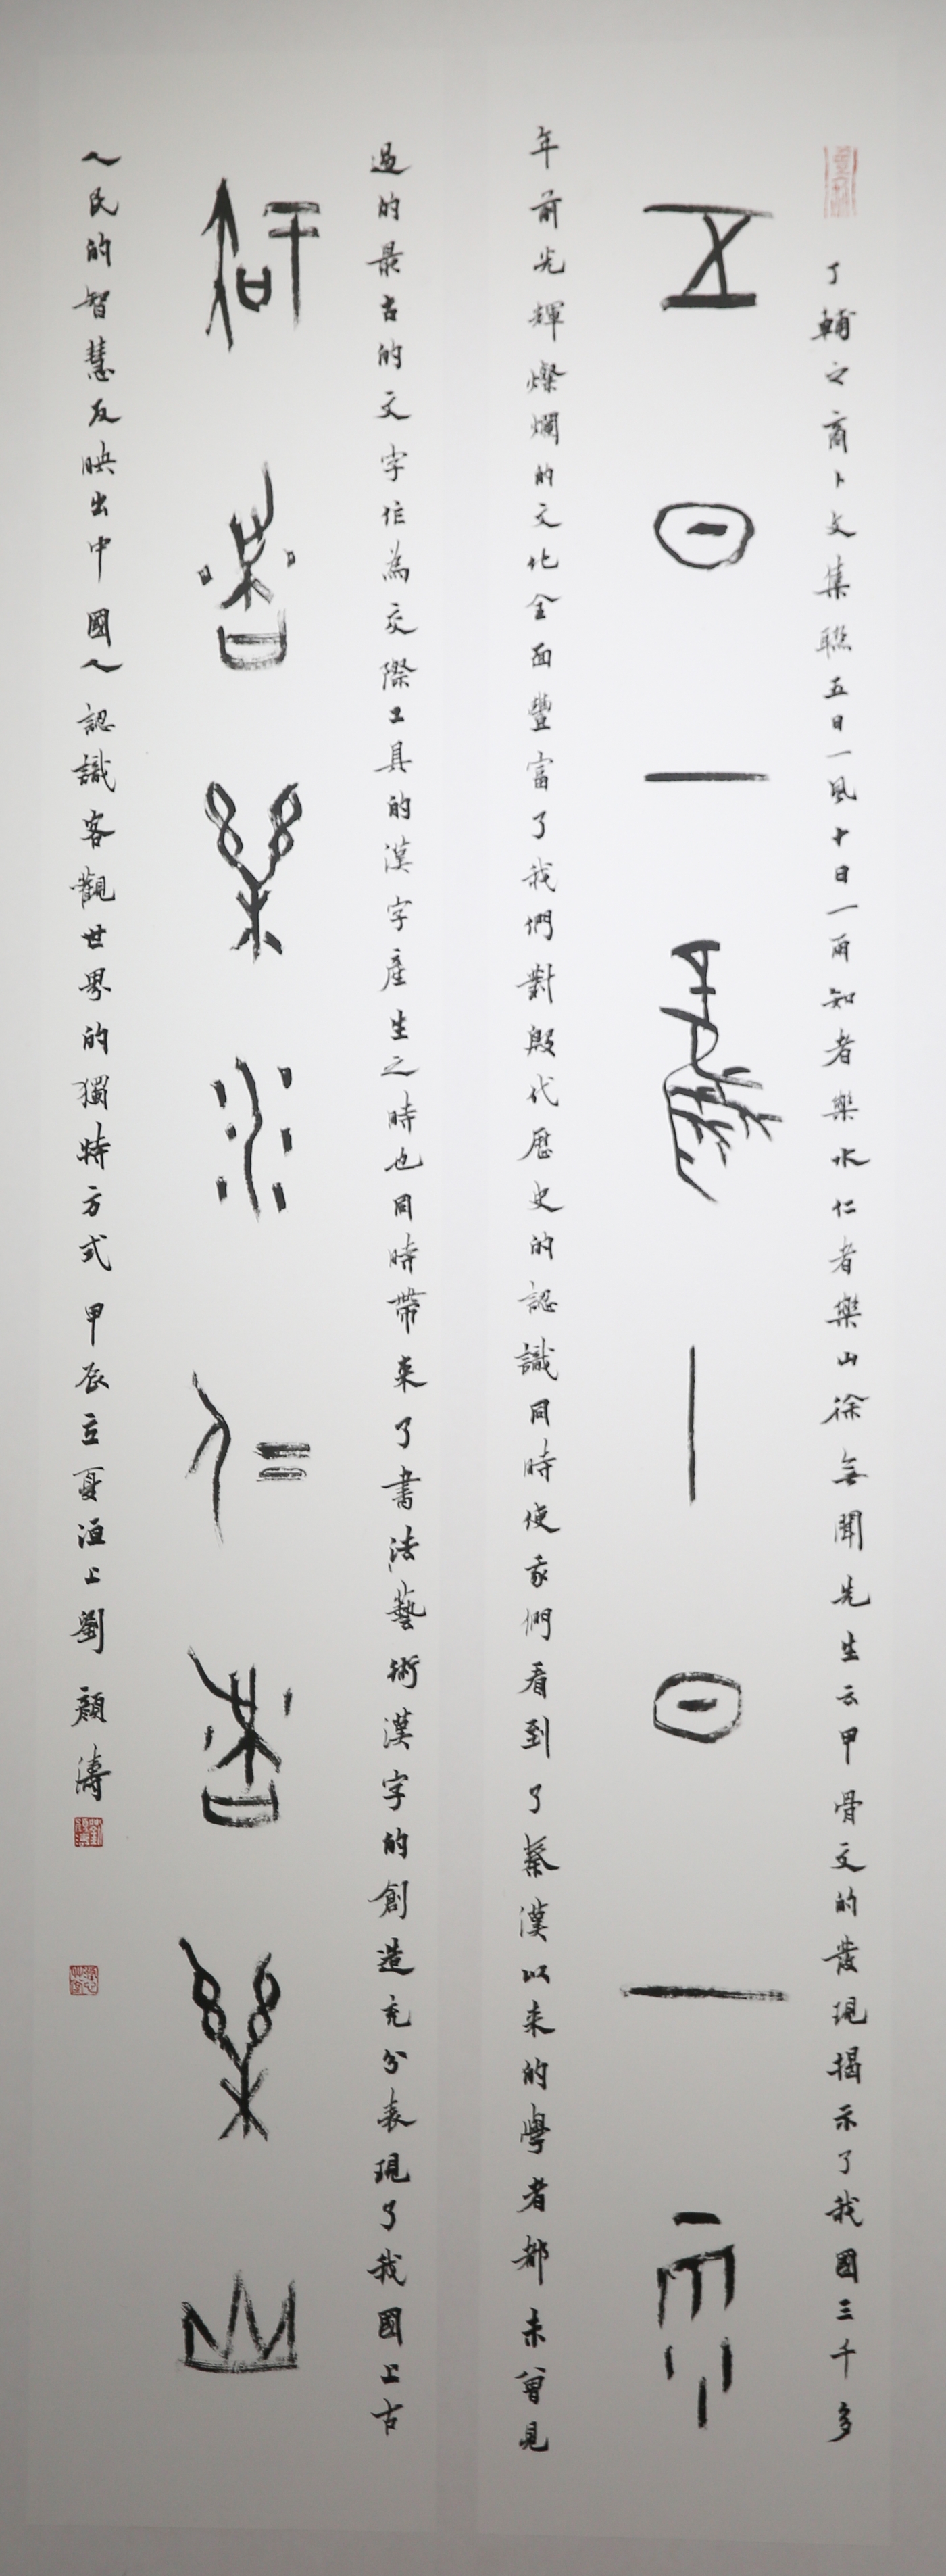 丁輔之商卜文集聯五日一風十日一雨知者樂水仁者樂山徐無聞先生云甲骨文的發現揭示了我國三千多
五日一風十日一雨
年前光輝燦爛的文化全面豐富了我們對殷代歷史的認識同時使我們看到了秦漢以來的學者都未曾見
過的最古的文字作為交際工具的漢字產生之時也同時帶來了書法藝術漢字的創造充分表現了我國上古
知者樂水仁者樂山
人民的智慧反映出中國人認識客觀世界的獨特方式甲辰立夏洹上劉顏濤